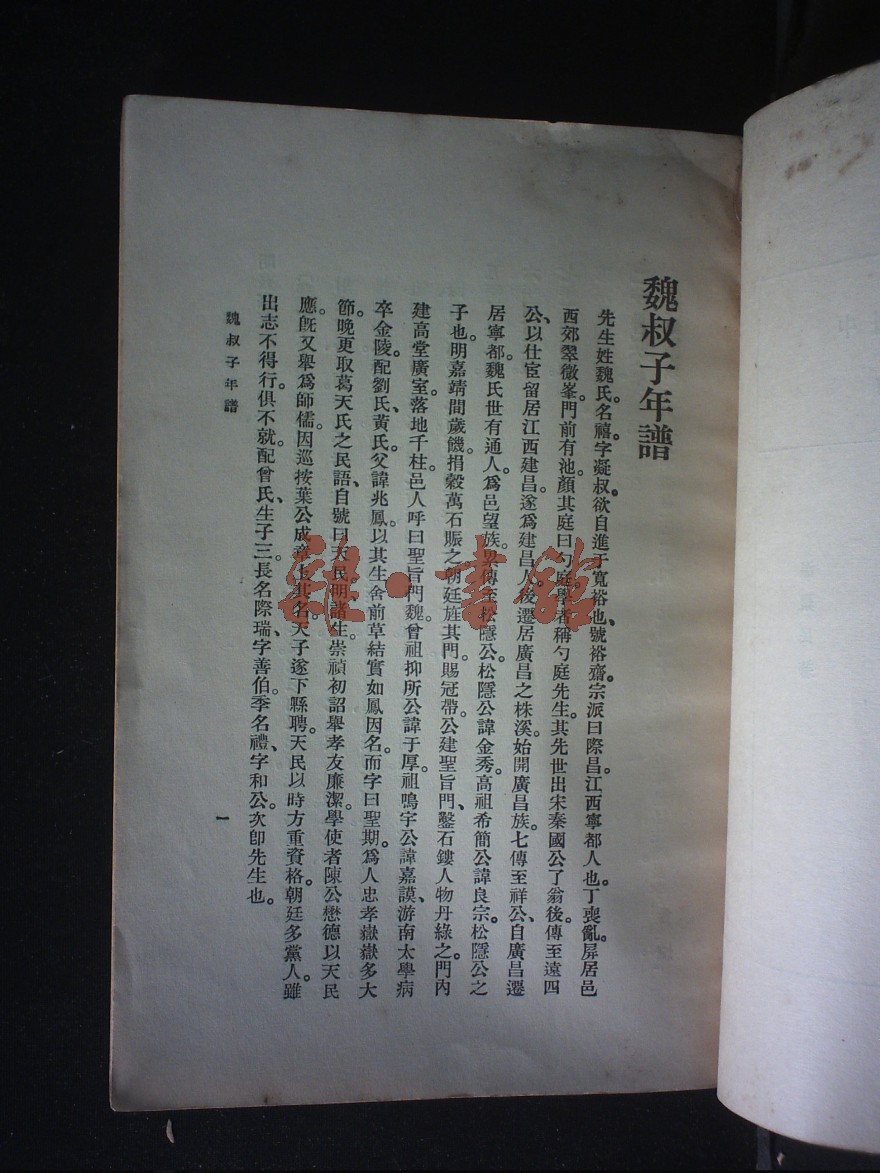 魏叔子年譜
先生姓魏氏。名禧。字凝叔。欲自進于寬裕也、號裕齋。宗派曰際昌。江西寧都人也。丁喪亂。屏居邑
西郊翠微峯。門前有池。顏其庭曰勺庭。學者稱勺庭先生。其先世出宋秦國公了翁後。傳至遠四
公、以仕宦留居江西建昌。遂爲建昌人。後遷居廣昌之株溪。始開廣昌族。七傳至祥公、自廣昌遷
居寧都。魏氏世有通人。爲邑望族。累傳至松隱公。松隱公諱金秀。高祖希簡公諱良宗。松隱公之
子也。明嘉靖間歲饑。捐穀萬石賑之。朝廷旌其門。賜冠帶。公建聖旨門、鑿石鏤人物丹綠之。門內
建高堂廣室。落地千柱。邑人呼曰聖旨門魏。曾祖抑所公諱于厚。祖鳴宇公諱嘉謨、游南太學。病
卒金陵。配劉氏、黃氏。父諱兆鳳。以其生舍前草結實如鳳因名。而字曰聖期。爲人忠孝嶽嶽多大
節。晚更取葛天氏之民語、自號曰天民。明諸生。崇禎初詔舉孝友廉潔。學使者陳公懋德以天民
應。旣又舉爲師儒。因巡按葉公成章上其名。天子遂下縣聘。天民以時方重資格。朝廷多黨人。雖
出志不得行。俱不就。配曾氏、生子三。長名際瑞、字善伯。季名禮、字和公。次卽先生也。
魏叔子年譜
一
雜·書館